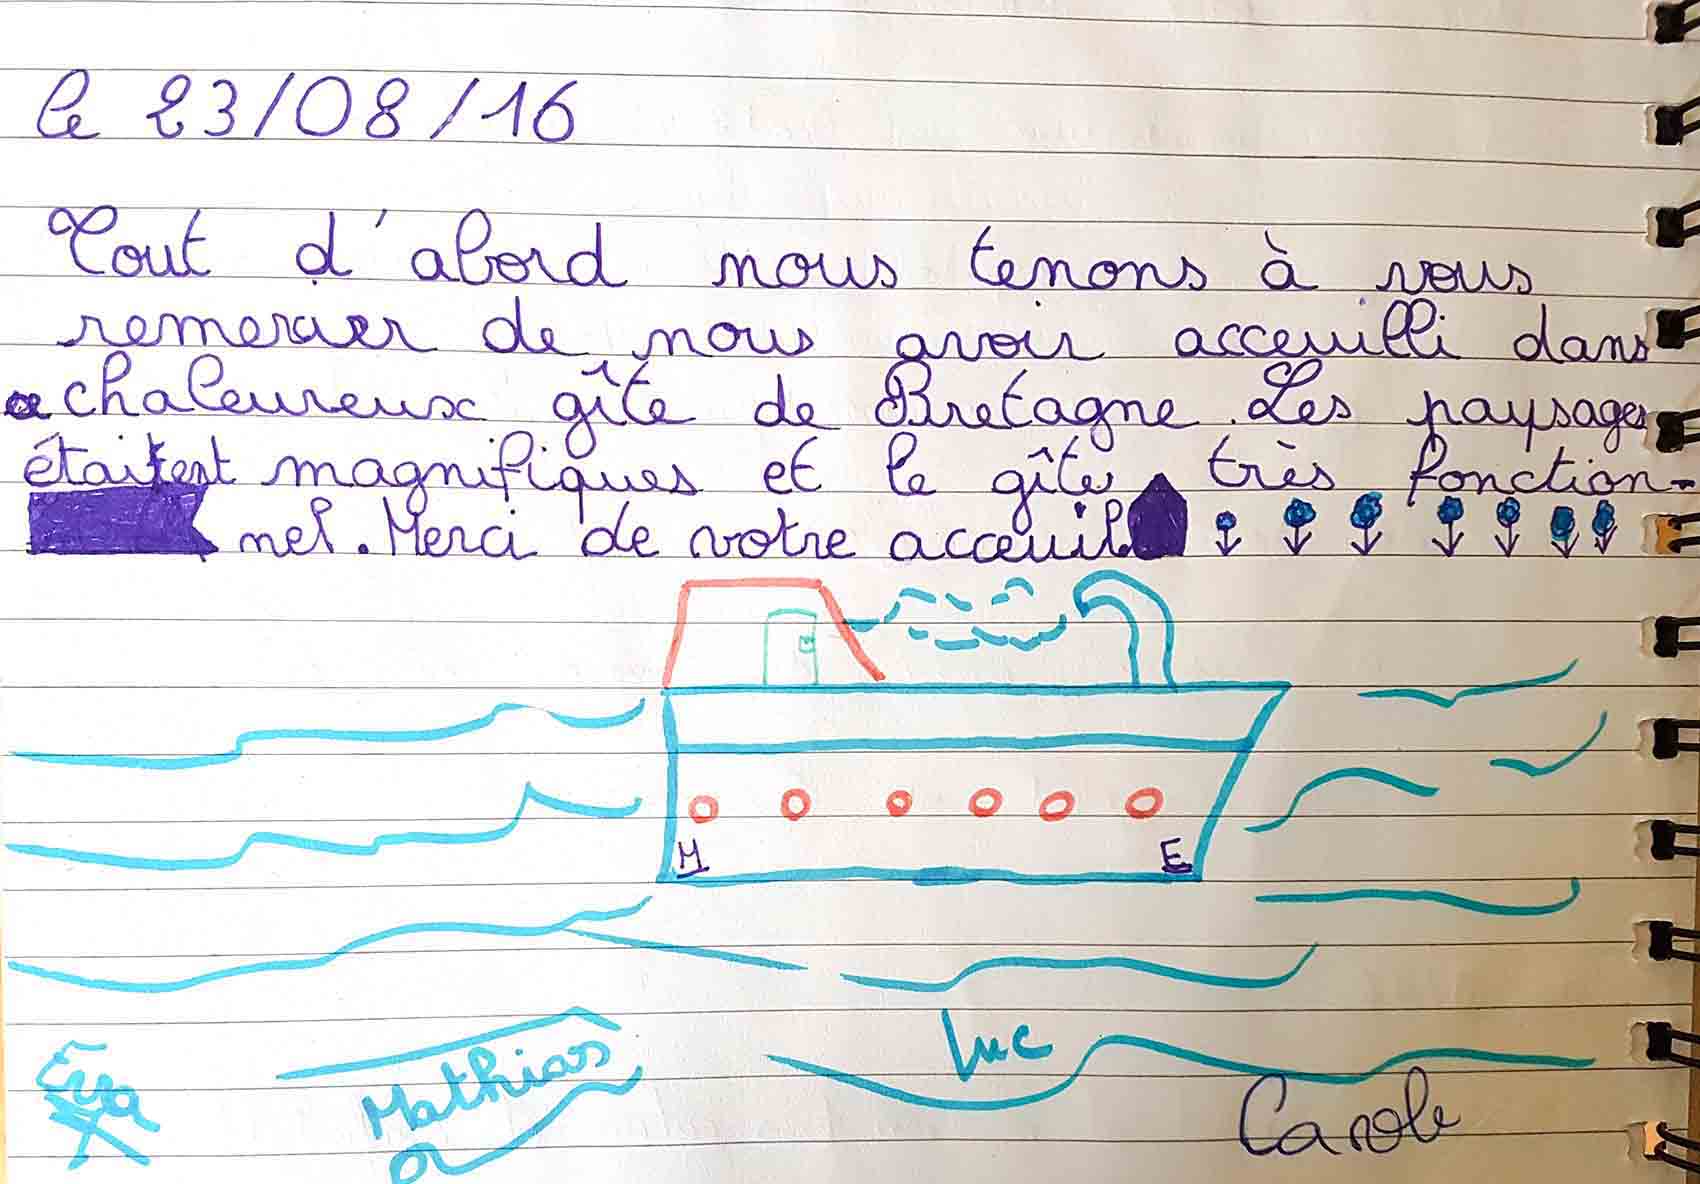 le 23/08/16
Tout d'abord nous tenons à vous
remercier de nous avoir acceuilli dans
ce chaleureux gîte de Bretagne. Les paysages
étaient magnifiques et le gîte très fonction-
nel. Merci de votre acceuil
M E
Eva Mathias Luc Carole